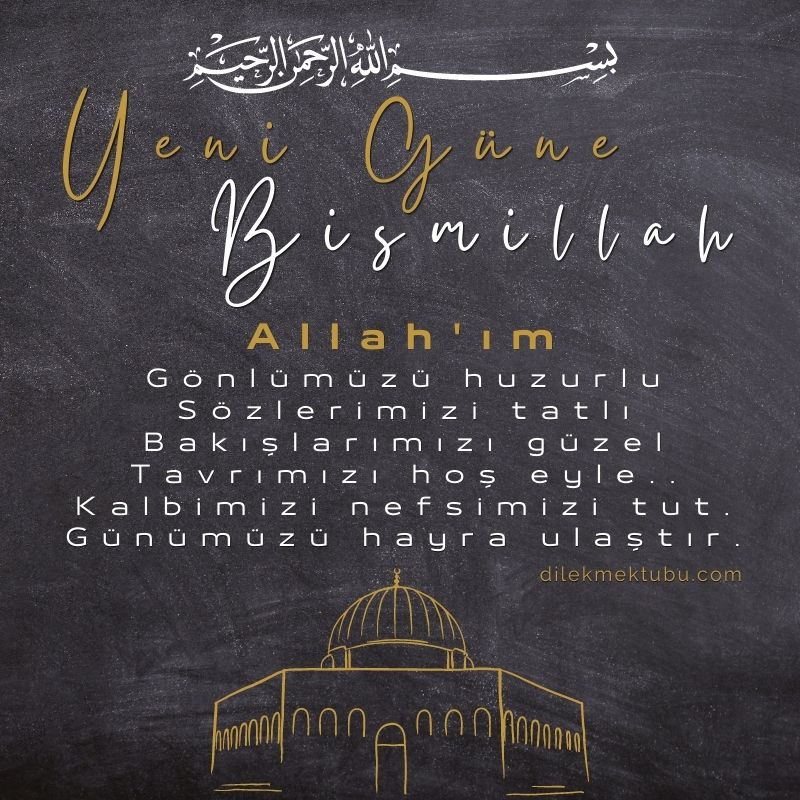 بِسْمِ اللهِ الرَّحْمٰنِ الرَّحِيْمِ
Yeni Güne
Bismillah
Allah'ım
Gönlümüzü huzurlu
Sözlerimizi tatlı
Bakışlarımızı güzel
Tavrımızı hoş eyle..
Kalbimizi nefsimizi tut.
Günümüzü hayra ulaştır.
dilekmektubu.com